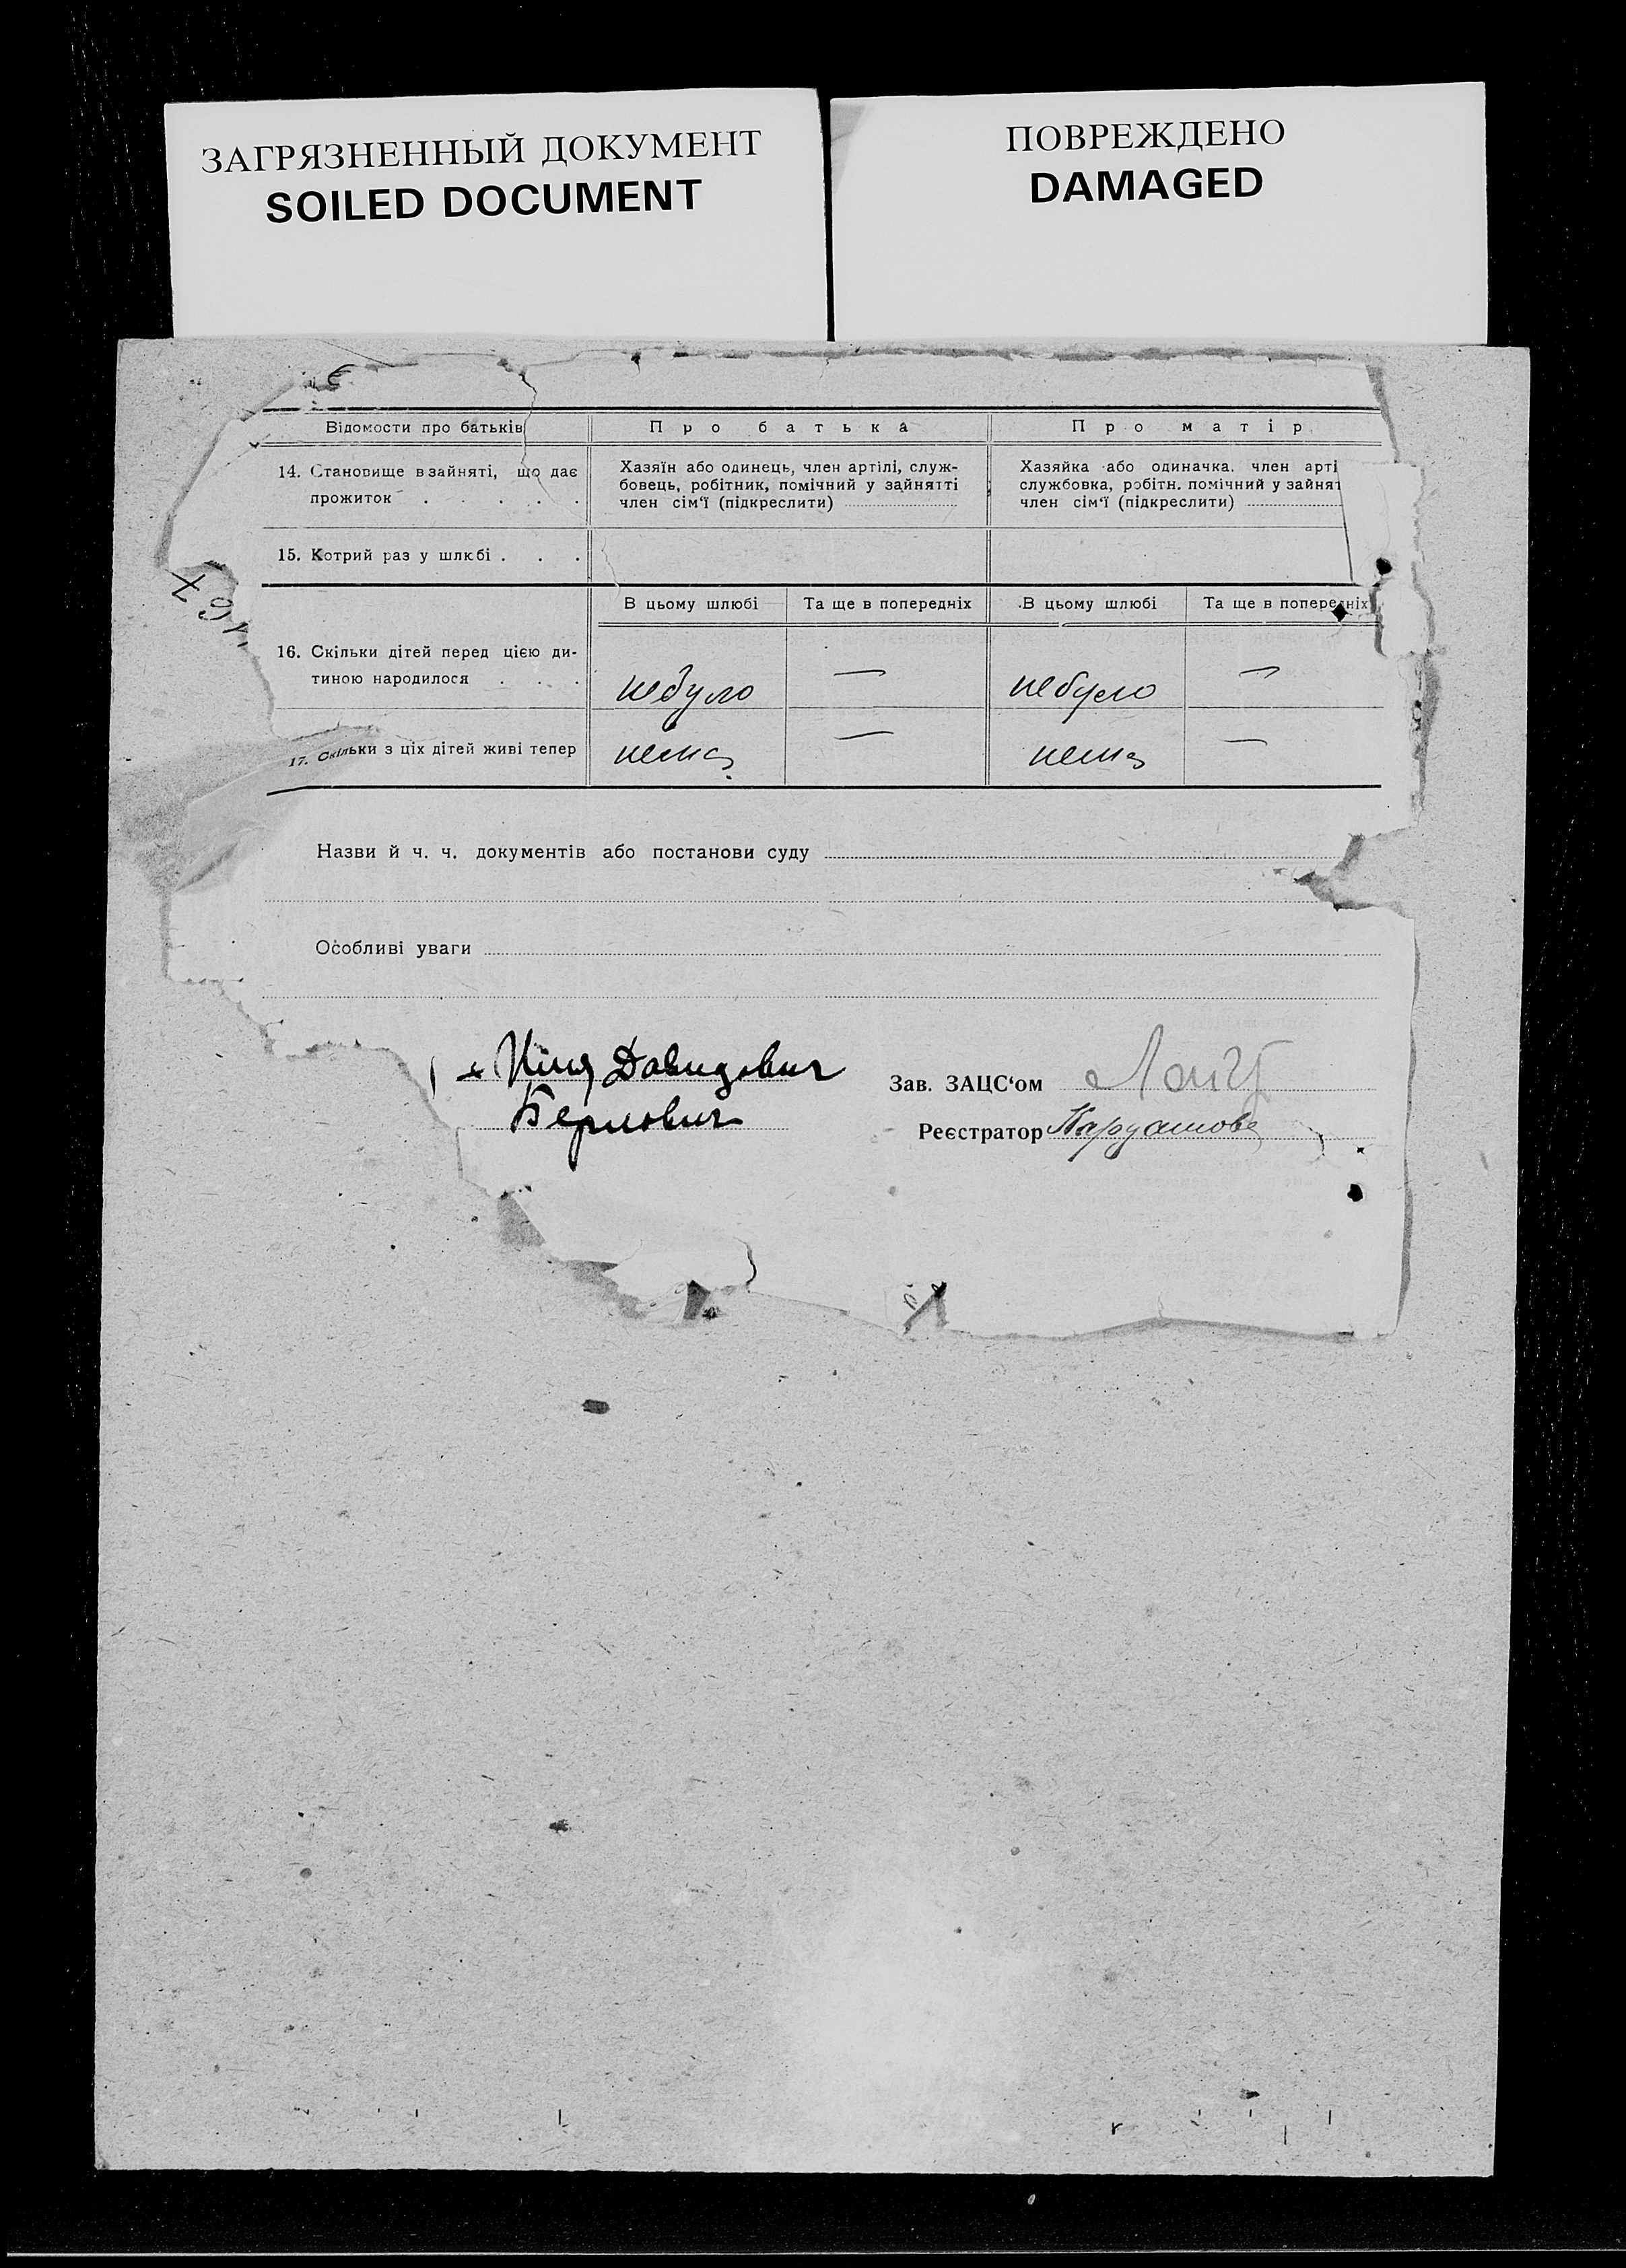 ЗАГРЯЗНЕННЫЙ ДОКУМЕНТ
SOILED DOCUMENT
ПОВРЕЖДЕНО
DAMAGED
Відомости про батьків
Про батька
Про матір
14. Становище в зайняті, що дає
прожиток . . . . .
Хазяїн або одинець, член артілі, служ-
бовець, робітник, помічний у зайнятті
член сім‘ї (підкреслити)
Хазяйка або одиначка, член арті
службовка, робітн. помічний у зайнят
член сім‘ї (підкреслити)
15. Котрий раз у шлюбі . . .
В цьому шлюбі
Та ще в попередніх
В цьому шлюбі
Та ще в попередніх
16. Скільки дітей перед цією ди-
тиною народилося . . .
небуло
—
небуло
—
17. Скільки з ціх дітей живі тепер
нема
—
нема
—
Назви й ч. ч. документів або постанови суду
Особливі уваги
Давидович
Зав. ЗАЦС‘ом
Берлович
Реєстратор Кардашова